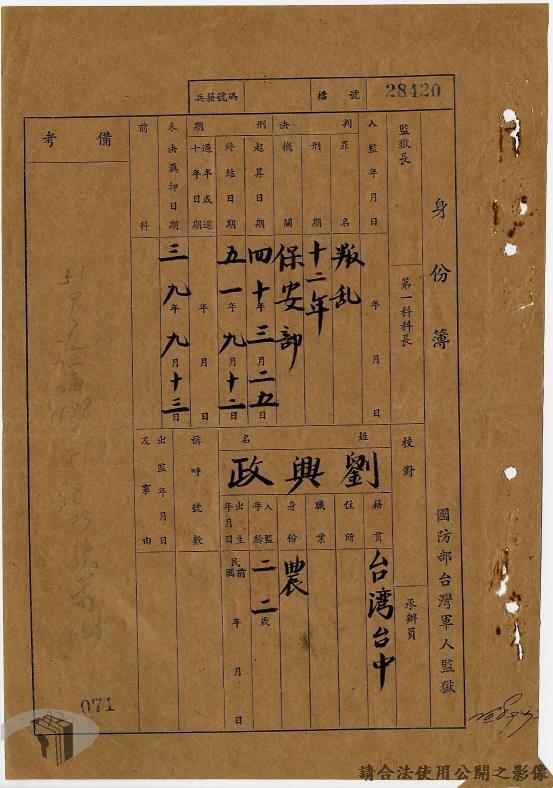 28420
檔號
兵籍號碼
身份簿
國防部台灣軍人監獄
監獄長
第一科科長
校對
承辦員
入監年月日
年月日
判決
罪名
叛乱
刑期
十二年
機關
保安部
刑期
起算日期
四十年三月二五日
終結日期
五一年九月十二日
過半或逾十年日期
年月日
未決羈押日期
三九年九月十三日
前科
備考
姓名
劉興政
籍貫
台湾台中
住所
職業
農
身份
入監年齡
二二歲
出生年月日
民前國
年月日
稱呼號數
出監年月日及事由
071
請合法使用公開之影像